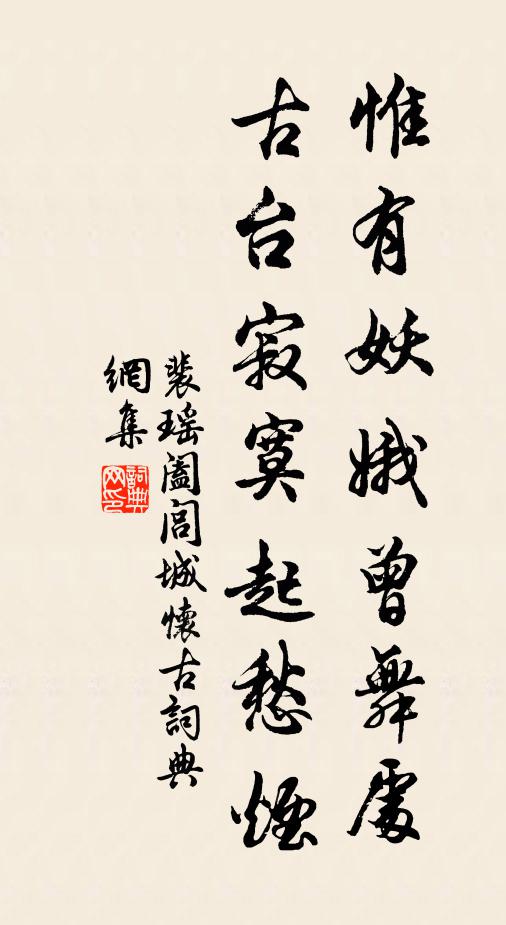 惟有妖娥曾舞處
古台寂寞起愁煙
裴瑶阖闾城懷古詞典
網集
詞典網印